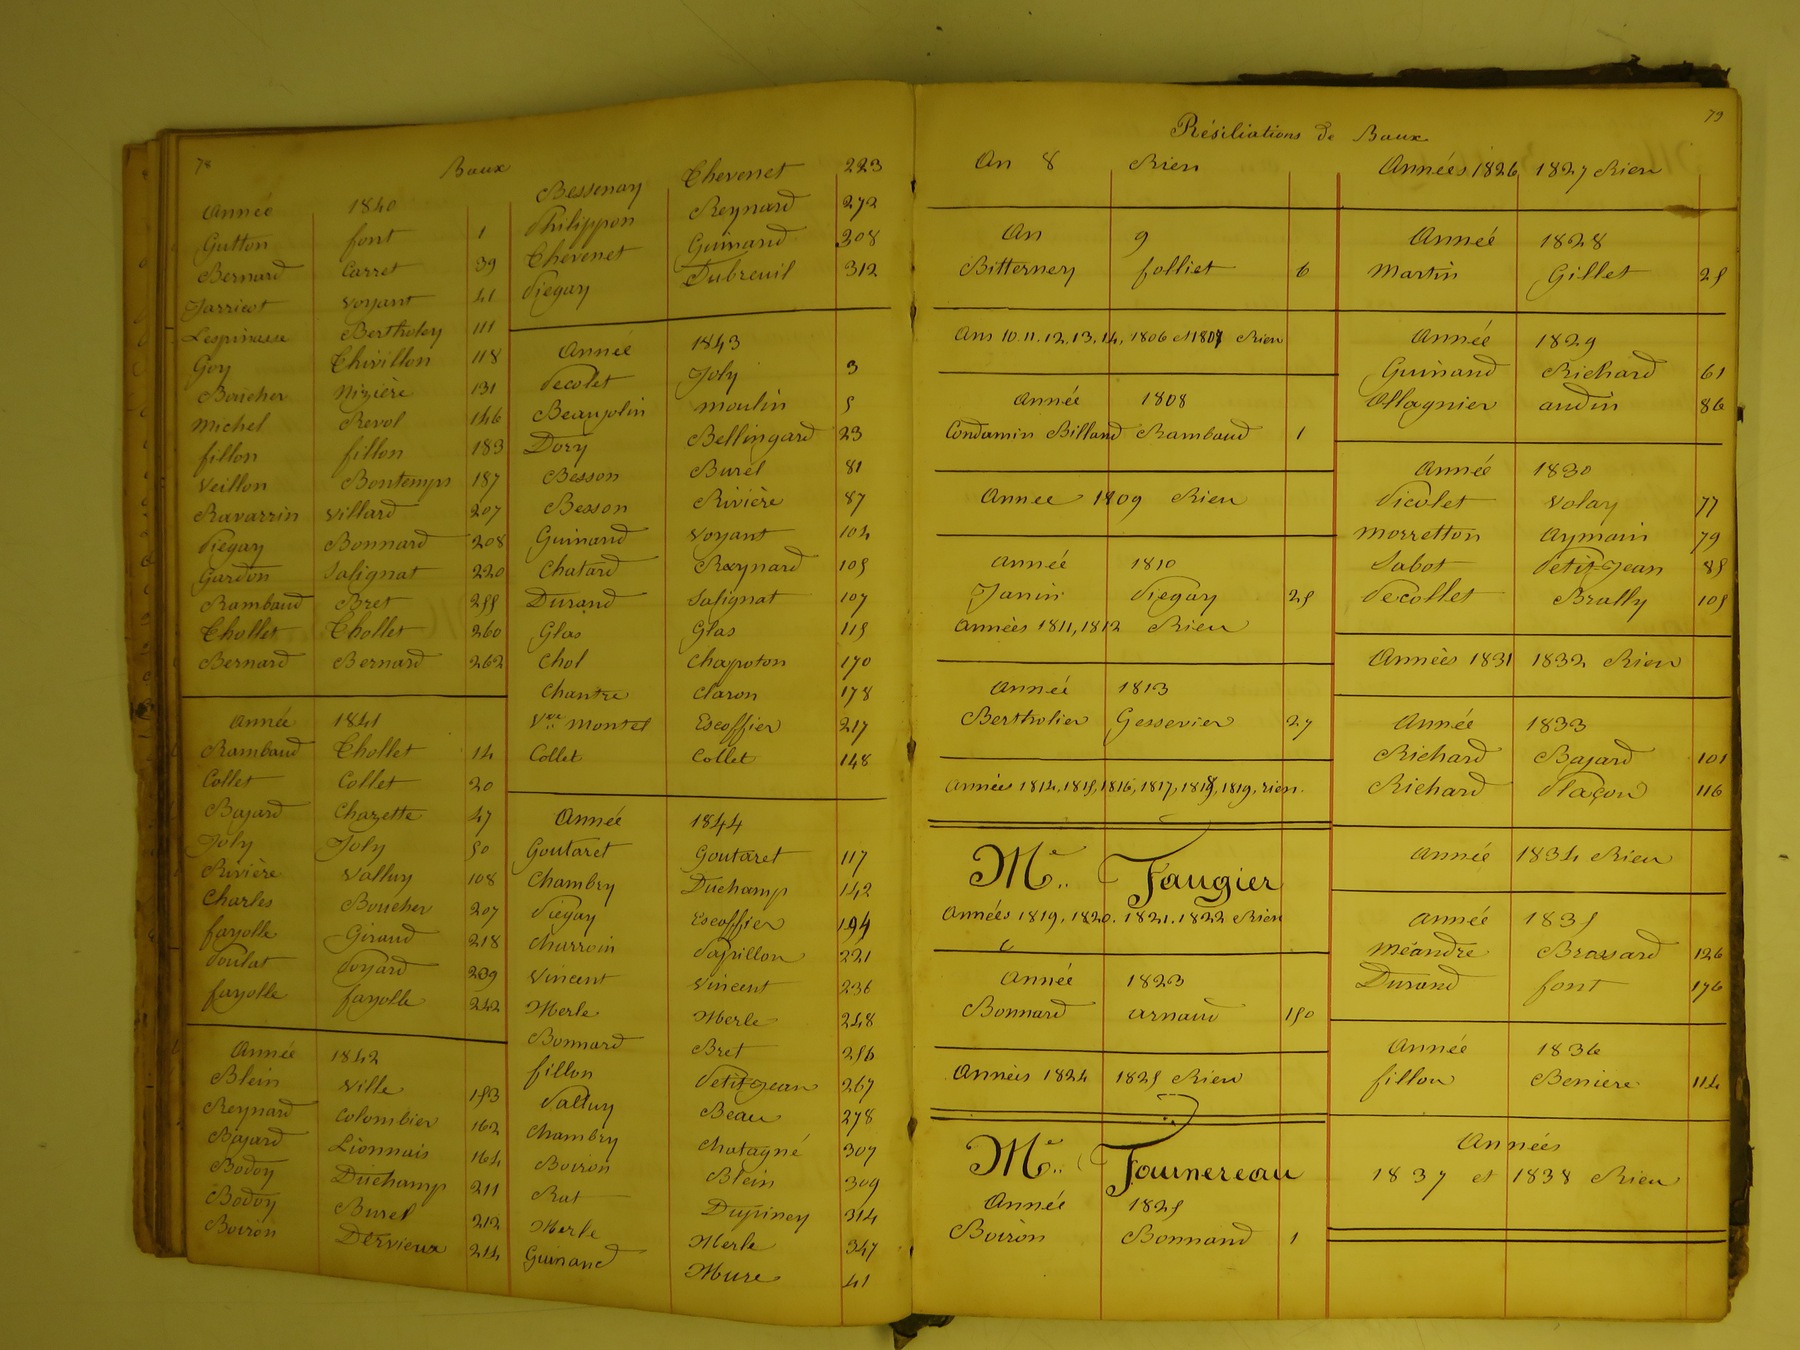 78
Baux
Année 1840
Gutton font 1
Bernard Carret 39
Jarricot Voyant 41
Lespinasse Bertholey 111
Goy Chivillon 118
Boucher Nizière 131
Michel Revol 146
fillon fillon 183
Veillon Bontemps 187
Ravarrin Villard 207
Piegay Bonnard 208
Gardon Salignat 220
Rambaud Bret 255
Chollet Chollet 260
Bernard Bernard 262
Année 1841
Rambaud Chollet 14
Collet Collet 20
Bajard Chazette 47
Joly Joly 50
Rivière Valluy 108
Charles Boucher 207
fayolle Giraud 218
Poulat Poyard 239
fayolle fayolle 242
Année 1842
Blein Ville 153
Reynard Colombier 162
Bajard Lionnais 164
Bodoy Duchamp 211
Bodoy Burel 212
Boiron Dervieux 214
Bessenay Chevenet 223
Philippon Reynard 272
Chevenet Guinand 308
Piegay Dubreuil 312
Année 1843
Decolet Joly 3
Beaujolin Moulin 5
Dory Bellingard 23
Besson Burel 81
Besson Rivière 87
Guinand Voyant 104
Chatard Raynard 105
Durand Salignat 107
Glas Glas 115
Chol Chapoton 170
Chantre Claron 178
Vve Montel Escoffier 217
Collet Collet 148
Année 1844
Goutaret Goutaret 117
Chambry Duchamp 142
Piegay Escoffier 194
Charroin Papillon 221
Vincent Vincent 236
Merle Merle 248
Bonnard Bret 256
fillon Petitjean 267
Valluy Beau 278
Chambry Chatagné 307
Boiron Blein 309
Rat Dupiney 314
Merle Merle 347
Guinand Mure 41
79
Résiliations de Baux
An 8 Rien
An 9
Bitterney folliet 6
Ans 10. 11. 12, 13, 14, 1806 et 1807 Rien
Année 1808
Condamin Billand Rambaud 1
Année 1809 Rien
Année 1810
Janin Piegay 25
Années 1811, 1812 Rien
Année 1813
Bertholier Gessevier 27
Années 1814, 1815, 1816, 1817, 1818, 1819, rien.
Me Faugier
Années 1819, 1820. 1821. 1822 Rien
Année 1823
Bonnard Arnaud 150
Années 1824 1825 Rien
Me Fournereau
Année 1825
Boiron Bonnand 1
Années 1826 1827 Rien
Année 1828
Martin Gillet 25
Année 1829
Guinand Richard 61
Ollagnier audin 86
Année 1830
Picolet Volay 77
Morretton Aymain 79
Sabot Petit Jean 85
Decollet Brally 105
Années 1831 1832 Rien
Année 1833
Richard Bajard 101
Richard Plaçon 116
Année 1834 Rien
Année 1835
Méandre Brossard 126
Durand font 176
Année 1836
fillon Beniere 114
Années
1837 et 1838 Rien